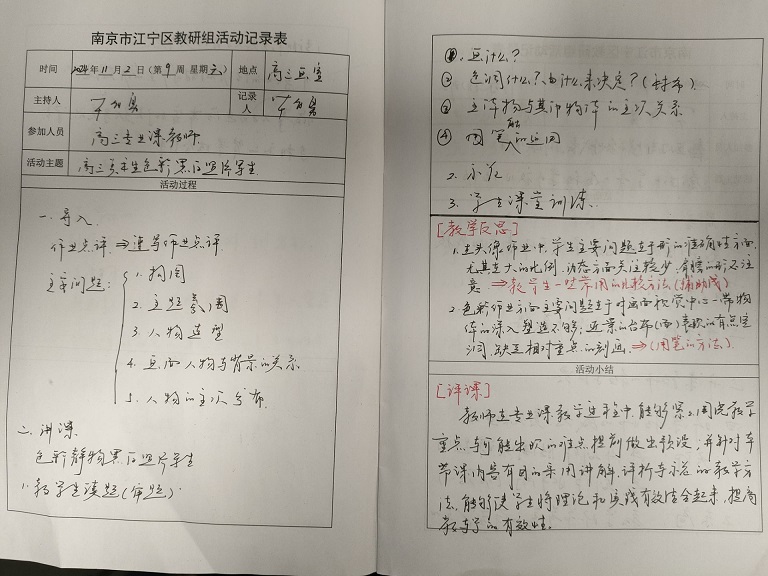 南京市江宁区教研组活动记录表
时间 2024年11月2日（第9周 星期六） 地点 高三画室
主持人 记录人
参加人员 高三专业课教师
活动主题 高三美术生色彩黑白照片写生
活动过程
一. 导入
作业点评 ⇒ 速写作业点评
主要问题：
1. 构图
2. 主题氛围
3. 人物造型
4. 画面人物与背景的关系
5. 人物的主次分布
二. 讲课
色彩静物黑白照片写生
1. 教学生读题（审题）
①. 画什么？
② 色调什么？由什么来决定？（衬布）
③ 主体物与其他物体的主次关系
④ 用笔触的运用
2. 示范
3. 学生课堂训练.
[教学反思]
1. 在头像作业中，学生主要问题在于形的准确性方面，
尤其在大的比例、动态方面关注较少，身体的形不注
意 ⇒ 教学生一些常用的比较方法（辅助线）
2. 色彩作业方面主要问题在于对画面视觉中心一带物
体的深入塑造不够；近景的台布（面）表现的有点空
洞，缺乏相对重点的刻画. ⇒（用笔的方法）
活动小结
[评课]
教师在专业课教学过程中，能够紧紧围绕教学
重点与可能出现的难点提前做出预设，并针对本
节课内容有目的采用讲解、评析与示范的教学方
法，能够使学生将理论和实践有效结合起来，提高
教学的有效性.